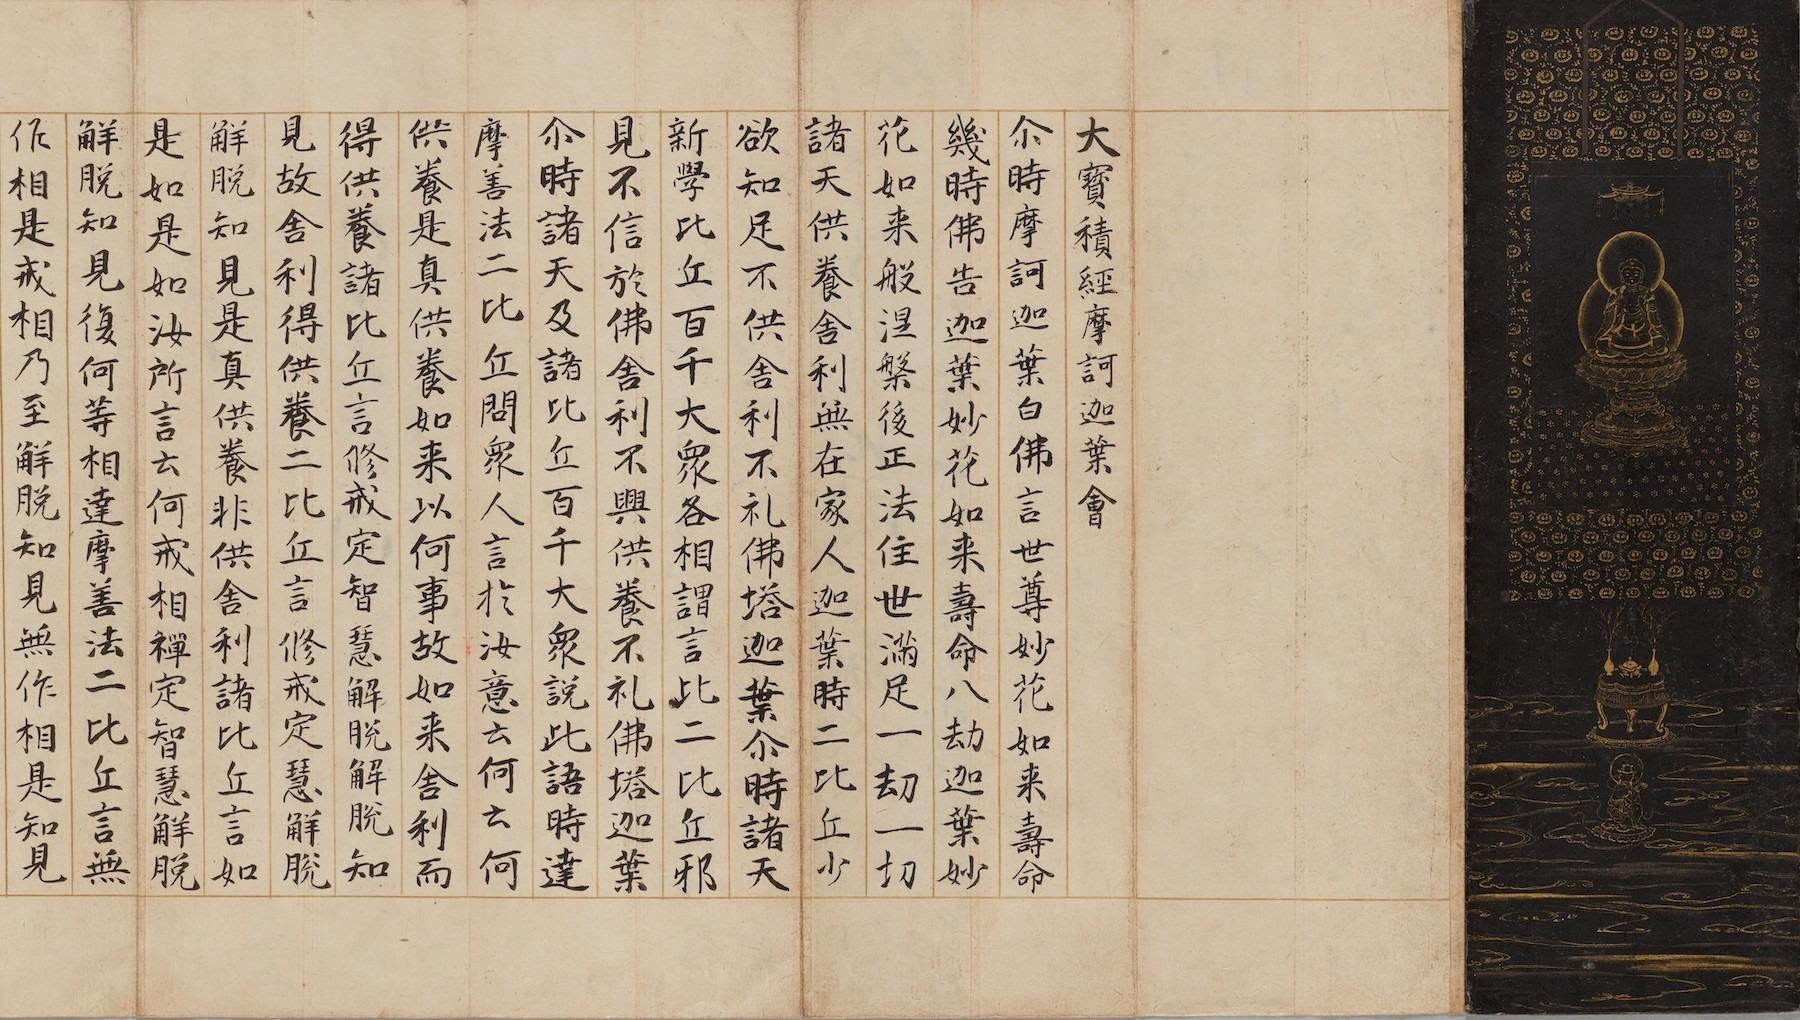 大寳積經摩訶迦葉會
尒時摩訶迦葉白佛言世尊妙花如来壽命
幾時佛告迦葉妙花如来壽命八劫迦葉妙
花如来般涅槃後正法住世滿足一劫一切
諸天供養舎利無在家人迦葉時二比丘少
欲知足不供舎利不礼佛塔迦葉尒時諸天
新學比丘百千大衆各相謂言此二比丘邪
見不信於佛舎利不興供養不礼佛塔迦葉
尒時諸天及諸比丘百千大衆說此語時達
摩善法二比丘問衆人言於汝意云何云何
供養是真供養如来以何事故如来舎利而
得供養諸比丘言修戒定智慧解脱解脱知
見故舎利得供養二比丘言修戒定慧解脱
解脱知見是真供養非供舎利諸比丘言如
是如是如汝所言云何戒相禪定智慧解脱
解脱知見復何等相達摩善法二比丘言無
作相是戒相乃至解脱知見無作相是知見